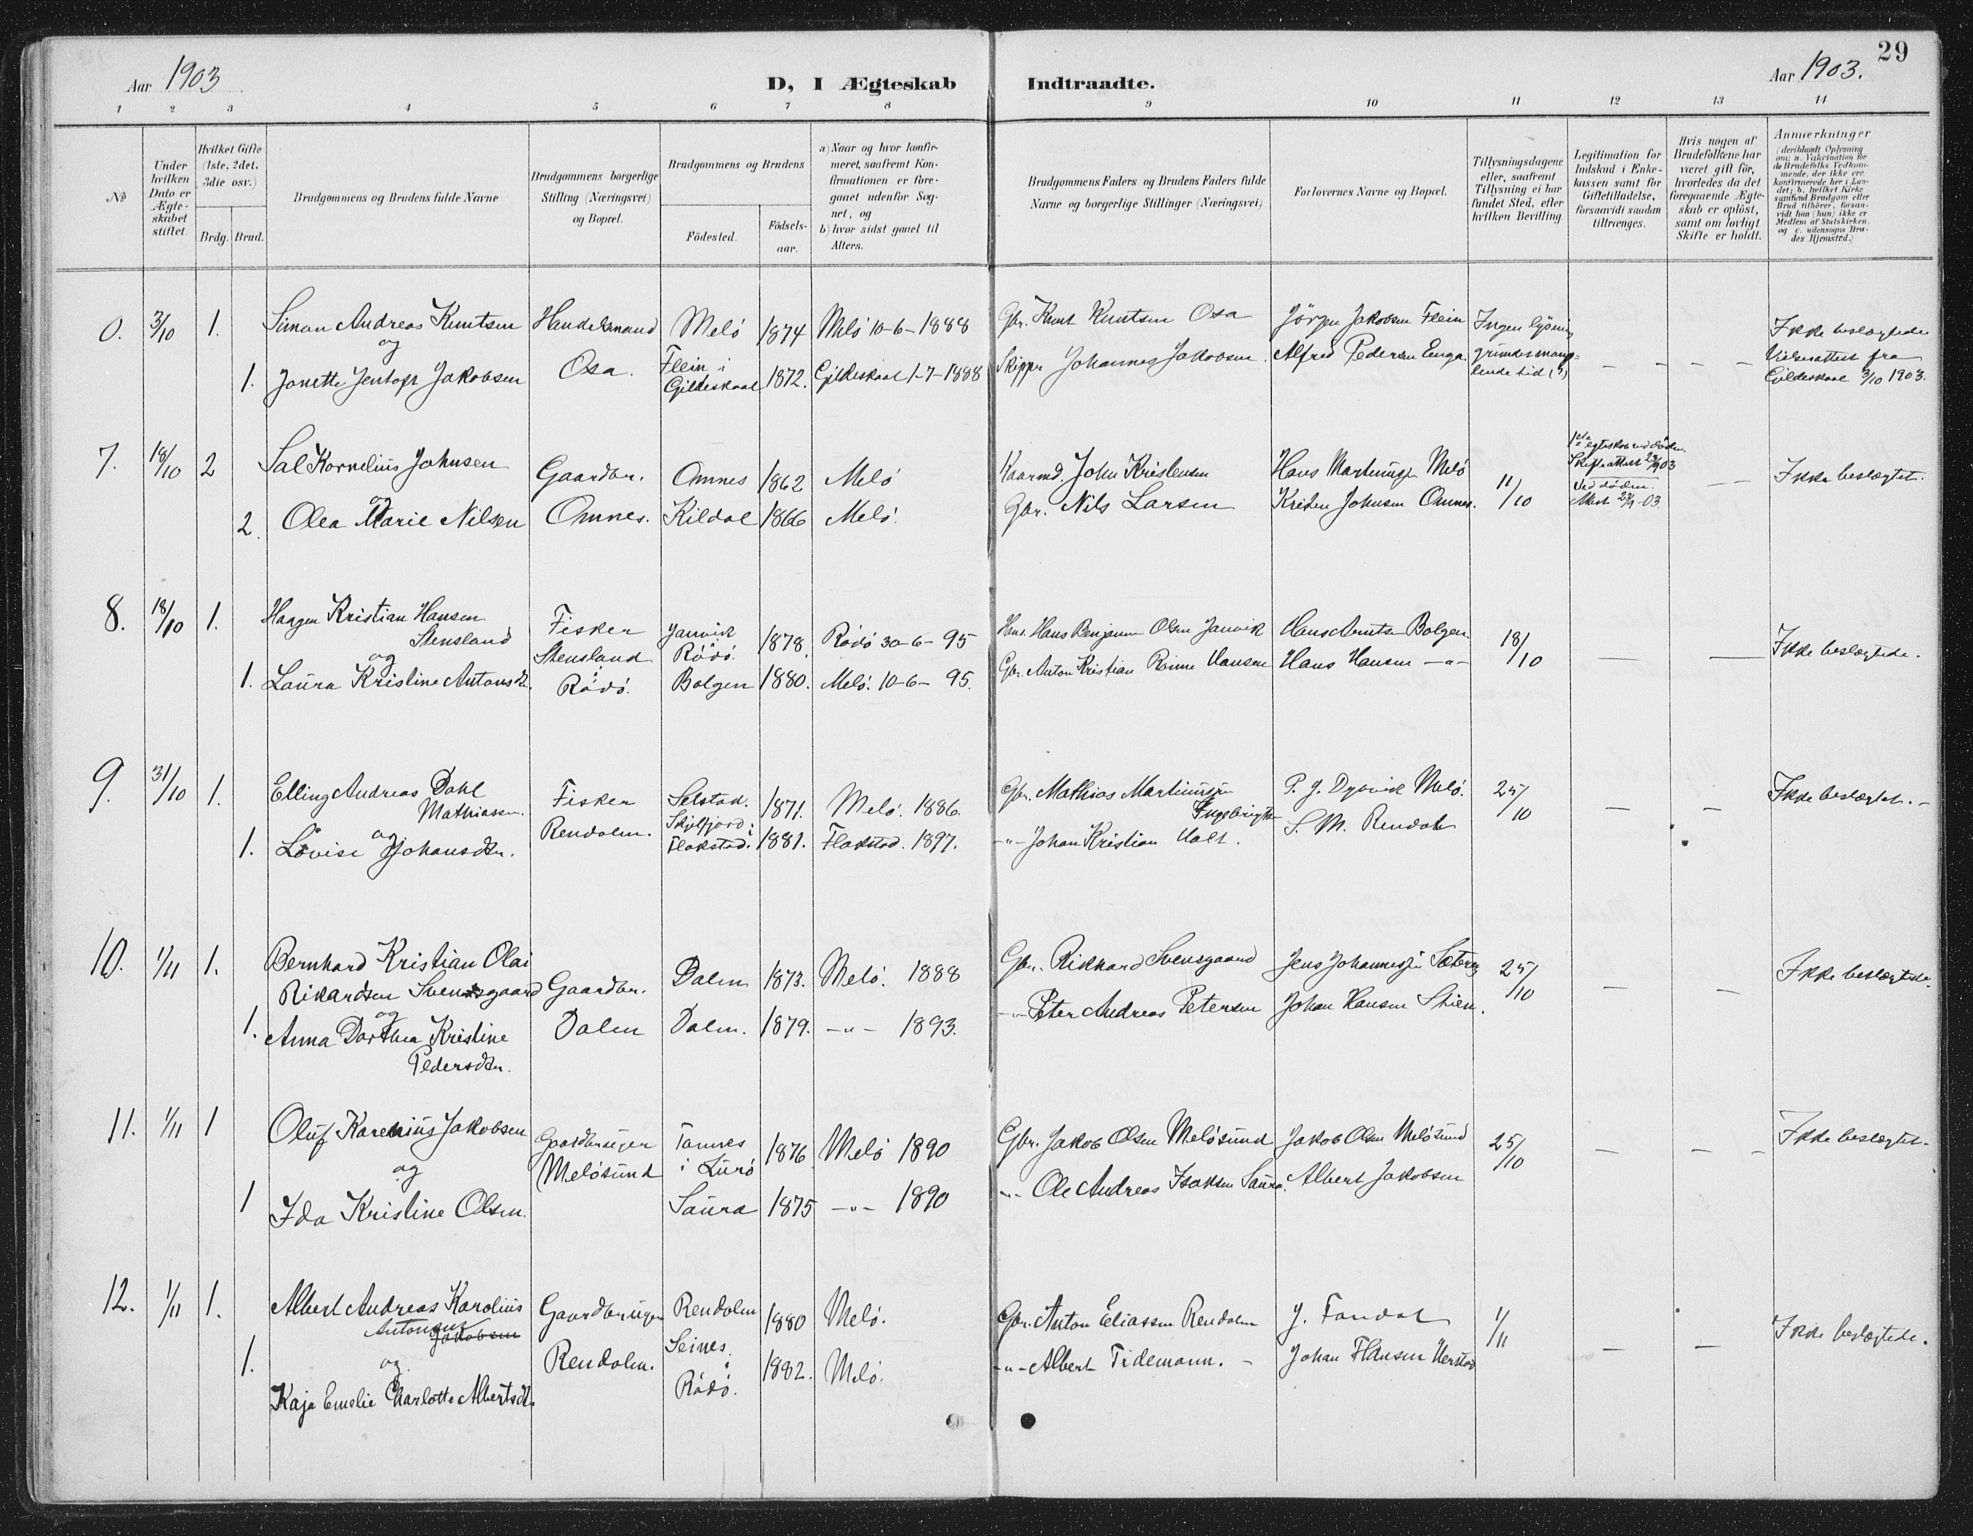 29
Aar 1903
D, I Ægteskab Indtraadte.
Aar 1903.
1 2 3 4 5 6 7 8 9 10 11 12 13 14
No
Under hvilken Dato er Ægteskabet stiftet.
Hvilket Gifte (1ste, 2det, 3die osv.)
Brdg. Brud.
Brudgommens og Brudens fulde Navne
Brudgommens borgerlige Stilling (Næringsvei) og Bopæl.
Brudgommens og Brudens
Fødested.
Fødselsaar.
a) Naar og hvor konfirmeret, saafremt Konfirmationen er foregaaet udenfor Sognet, og
b) hvor sidst gaaet til Alters.
Brudgommens Faders og Brudens Faders fulde Navne og borgerlige Stillinger (Næringsvei)
Forlovernes Navne og Bopæl.
Tillysningsdagene eller, saafremt Tillysning ei har fundet Sted, efter hvilken Bevilling.
Legitimation for Indskud i Enkekassen samt for Giftetilladelse, forsaavidt saadan tiltrænges.
Hvis nogen af Brudefolkene har været gift før, hvorledes da det foregaaende Ægteskab er opløst, samt om lovligt Skifte er holdt.
Anmerkninger
(deriblandt Oplysning om: a. Vakcination for de Brudefolks Vedkommende, der ikke ere konfirmerede her i Landet; b. hvilket Kirkesamfund Brudgom eller Brud tilhører, forsaavidt han (hun) ikke er Medlem af Statskirken, og c. udensogns Brudes Hjemsted.)
0. 3/10 1. Simon Andreas Knutsen Handelsmand Melö 1874 Melö 10-6-1888 Gbr. Knut Knutsen Osa Jørgen Jakobsen Flein Ingen lysning Ikke beslægtede
og Osa.
1. Janette Jentoft Jakobsen Flein i Gildeskaal 1872. Gildeskaal 1-7-1888 Skipper Johannes Jakobsen Alfred Pedersen Enga. – – – Gildeskaal 3/10 1903.
7. 18/10 2 Sal Kornelius Johnsen Gaardbr. Omnes 1862 Melö Kaarmd. John Kristensen Hans Martinusen Melö 11/10 Skifteattest – – Ikke beslægtet.
og
2. Olea Marie Nilsen Omnes. Kildal 1866 Melö. Gbr. Nils Larsen Kristen Johnsen Omnes. ved døden.
8. 18/10 1. Haagen Kristian Hansen Stensland Fisker Stensland Rödö. Janvik Rödö. 1878. Rödö 30-6-95 Hans Benjamin Olsen Janvik Hans Arntsen Bolgen 18/10 – – Ikke beslægtede.
og
1. Laura Kristine Antonsdtr. Bolgen 1880. Melö. 10-6-95. Gbr. Anton Kristian Hansen Hans Hansen –"–
9. 31/10 1. Elling Andreas Dahl Mathiassen Fisker Rendalen. Selstad. 1871. Melö. 1886. Gbr. Mathias Martinusen P. J. Dysvik Melö. 25/10 – – Ikke beslægtet. –
og
1. Lovise Johansdtr. Skjelfjord i Flakstad. 1881. Flakstad. 1897. –"– Johan Kristian S. M. Rendal
10. 1/11 1. Bernhard Kristian Olai Rikardsen Svensgaard Gaardbr. Dalen 1873. Melö. 1888 Gbr. Rikhard Svensgaard Jens Johannesen 25/10 – – Ikke beslægtede.
og
1. Anna Dorthea Kristine Pedersdtr. Dalen Dalen. 1879. –"– 1893. –"– Peter Andreas Petersen Johan Hansen Stien.
11. 1/11 1 Oluf Karenius Jakobsen Gaardbruger Melösund Tonnes i Lurö 1876. Melö 1890 Gbr. Jakob Olsen Melösund Jakob Olsen Melösund 25/10 – – – Ikke beslægtet.
og
1 Ida Kristine Olsen. Saura 1875 –"– 1890 –"– Ole Andreas Isaksen Saura. Albert Jakobsen
12. 1/11 1. Albert Andreas Karolius Antonsen Jakobsen Gaardbruger Rendalen 1880 Melö. Gbr. Anton Eliassen Rendalen J. Fondal 1/11 – – Ikke beslægtede.
og
1. Kaja Emelie Charlotte Albertsdtr. Rendalen. Seines i Rödö. 1882. Melö. –"– Albert Tidemann. – Johan Hansen